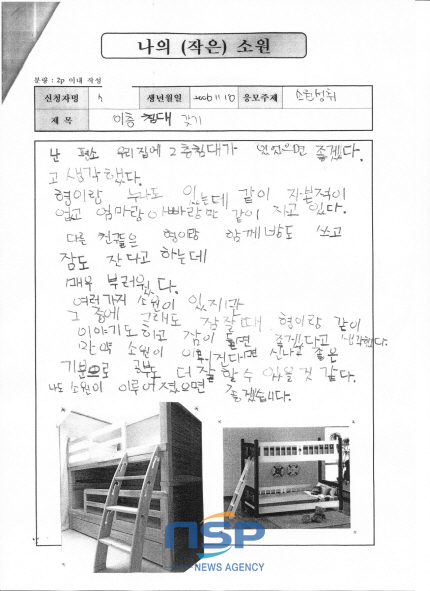 나의 (작은) 소원
분량 : 2p 이내 작성
신청자명 생년월일 응모주제 소원성취
제 목 이층 침대 갖기
난 평소 우리집에 2층침대가 있었으면 좋겠다.
고 생각했다.
형이랑 누나도 있는데 같이 자본적이
없고 엄마랑 아빠랑만 같이 자고 있다.
다른 친구들은 형이랑 함께 방도 쓰고
잠도 잔다고 하는데
매우 부러웠다.
여러가지 소원이 있지만
그 중에 그래도 잠잘때 형이랑 같이
이야기도하고 잠이 들면 좋겠다고 생각한다.
만약 소원이 이뤄진다면 신나고 좋은
기분으로 더 잘 할 수 있을 것 같다.
나도 소원이 이루어졌으면 좋겠습니다.
nsp
NEWS AGENCY